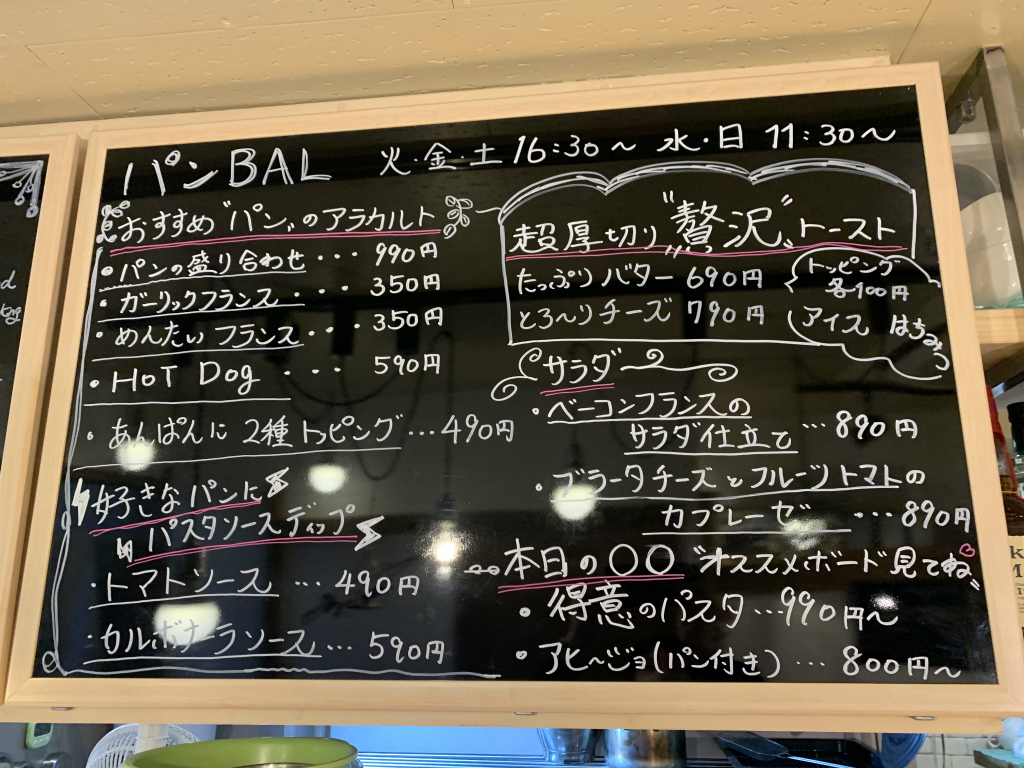 パンBAL 火・金・土 16:30～ 水・日 11:30～
おすすめ"パン"のアラカルト
・パンの盛り合わせ・・・990円
・ガーリックフランス・・・350円
・めんたいフランス・・・350円
・HOT Dog ・・・ 590円
・あんぱんに 2種トッピング…490円
好きなパンに
パスタソースディップ
・トマトソース …490円
・カルボナーラソース…590円
超厚切り"贅沢"トースト
たっぷりバター 690円
とろ～りチーズ 790円
トッピング
各100円
アイス はちみつ
サラダ
・ベーコンフランスの
サラダ仕立て…890円
・ブラータチーズとフルーツトマトの
カプレーゼ …890円
本日の〇〇 "オススメボード見てね"
・得意のパスタ…990円～
・アヒ～ジョ(パン付き) …800円～